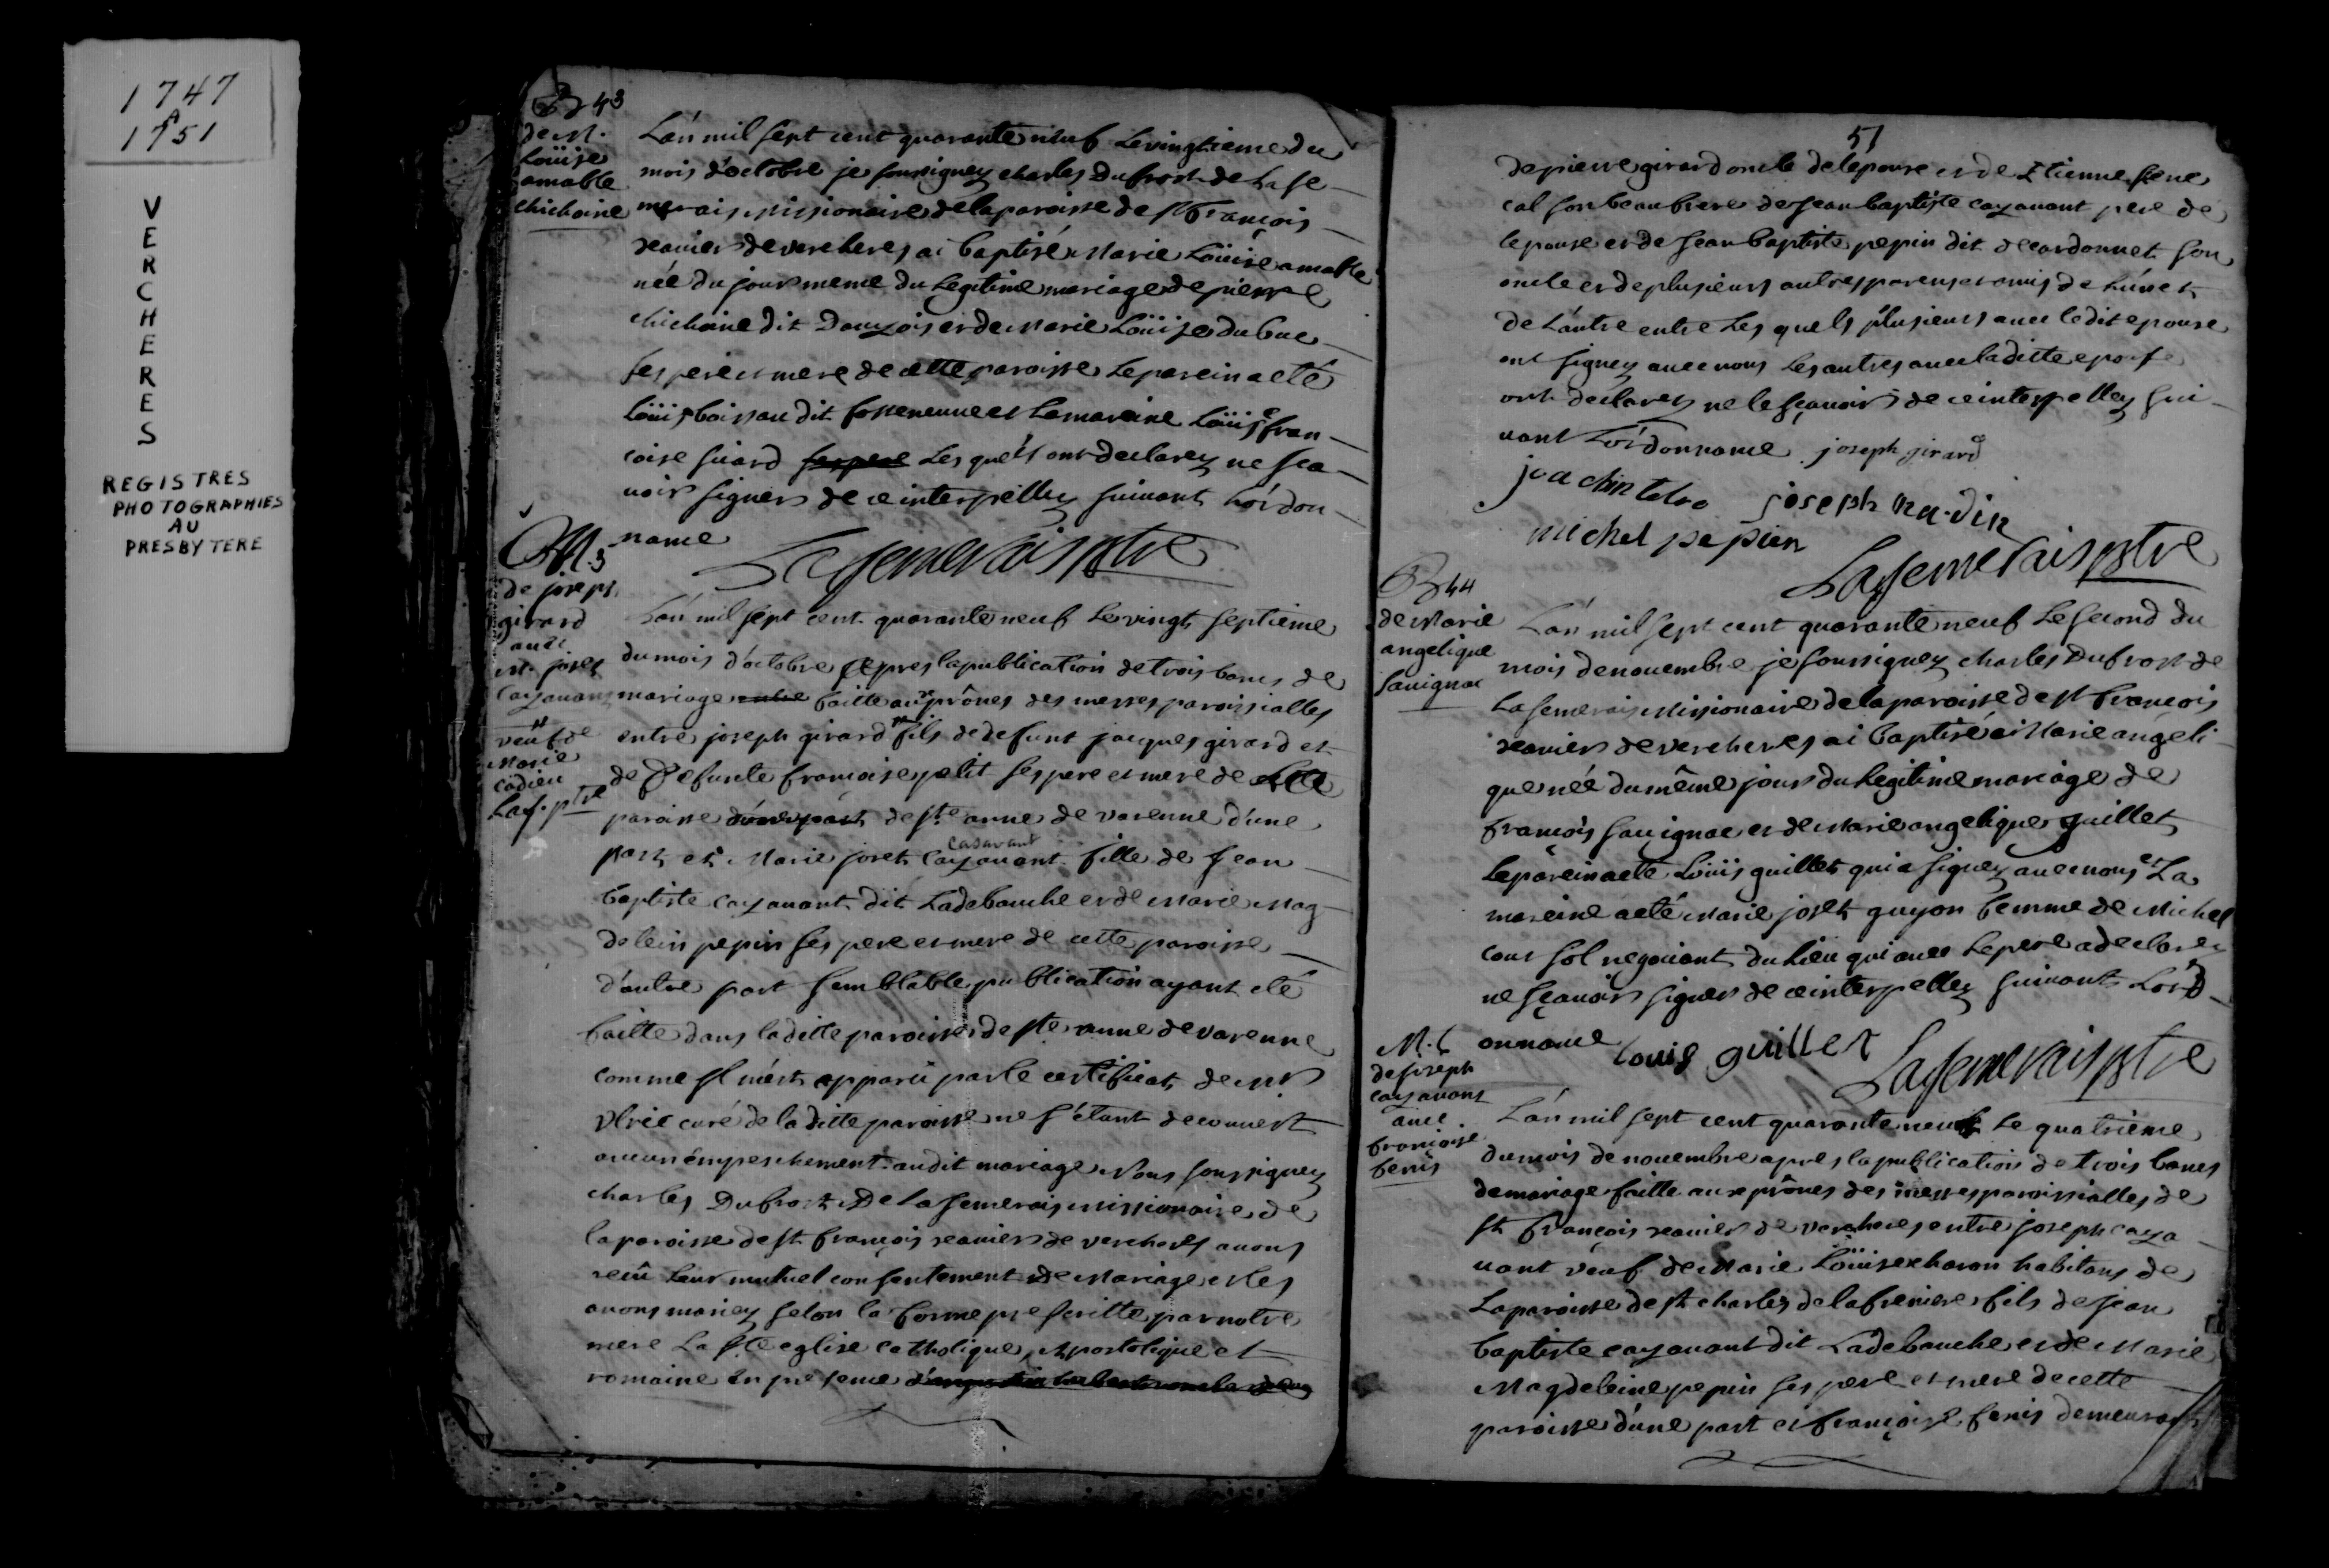 1747
à
1751
VERCHERES
REGISTRES
PHOTOGRAPHIES
AU
PRESBYTERE
B 43
de M.
Loüise
amable
chichoine
L'an mil sept cent quarante neuf le vingtieme du
mois d'octobre je soussignez charles Dufrost de la Je-
merais Missionaire de la paroisse de st François
xavier de vercheres ai baptisé Marie Loüise amable
née du jour meme du legitime mariage de pierre
chichoine dit Dauzois et de Marie Loüise Dubuc
ses pere et mere de cette paroisse le parein a eté
Loüis boisseau dit et la mareine Loüise fran-
coise huard ses pere les quels ont declarez ne sca-
voir signer de ce interpellez suivant l'ordon-
nance
Lajemerais ptre
M. 5
de joseph
girard
avec
M. josets
Cazavant
veuf de
Marie
cadieu
Laj. ptre
L'an mil sept cent quarante neuf le vingt septieme
du mois d'octobre apres la publication de trois bancs de
mariage entre faitte aux prônes des messes paroissialles
entre joseph girard fils de defunt jacques girard et
de Defunte francoise petit ses pere et mere de cette
paroisse d'une part de ste anne de varenne d'une
part et Marie josets Cazavant fille de Jean
Casavant
baptiste cazavant dit Ladebauche et de Marie Mag
delein pepin ses pere et mere de cette paroisse
d'autre part semblable publication ayant eté
faitte dans laditte paroisse de ste anne de varenne
comme il m'est apparû par le certificat de Mr
Ulric curé de laditte paroisse ne s'étant decouvert
aucun émpeschement audit mariage Nous soussignez
charles Dufrost De Lajemerais Missionaire de
la paroisse de st françois xavier de vercheres avons
reçû leur mutuel consentement de Mariage et les
avons mariez selon la forme prescritte par notre
mere La Ste eglise catholique, apostolique et
romaine en presence
51
de pierre girard oncle de lepouse et de Etienne sene
cal son beaufrere de jean baptiste cazavant pere de
lepouse et de jean baptiste pepin dit decardonnet son
oncle et de plusieurs autres parens et amis de l'un et
de l'autre entre les quels plusieurs avec ledit epouse
ont signez avec nous les autres avec laditte epouse
ont declarez ne le sçavoir de ce interpellez sui-
vant L'ordonnance joseph girard
joachin joseph na·din
michel pepien
Lajemerais ptre
B 44
de Marie
angelique
Savignac
L'an mil sept cent quarante neuf le second du
mois de novembre je soussignez charles Dufrost de
Lajemerais Missionaire de la paroisse de st françois
xavier de vercheres ai baptisé Marie angeli
que née du même jour du legitime mariage de
françois savignac et de Marie angelique guillet
le parein a eté Loüis guillet qui a signez avec nous et La
mareine a eté Marie josets guyon femme de Michel
coursol negociant du lieu qui avec le pere a declarez
ne sçavoir signer de ce interpellez suivant L'ord-
onnance
Louis guillet Lajemerais ptre
M. 6
de joseph
cazavant
avec
françoise
fenis
L'an mil sept cent quarante neuf le quatrieme
du mois de novembre apres la publication de trois bancs
de mariage faitte aux prônes des messes paroissialles de
st françois xavier de vercheres entre joseph caza
vant veuf de Marie Loüise charon habitans de
La paroisse de st charles de la freniere fils de jean
baptiste cazavant dit Ladebauche et de Marie
Magdeleine pepin ses pere et mere de cette
paroisse d'une part et françoise fenis demeurant